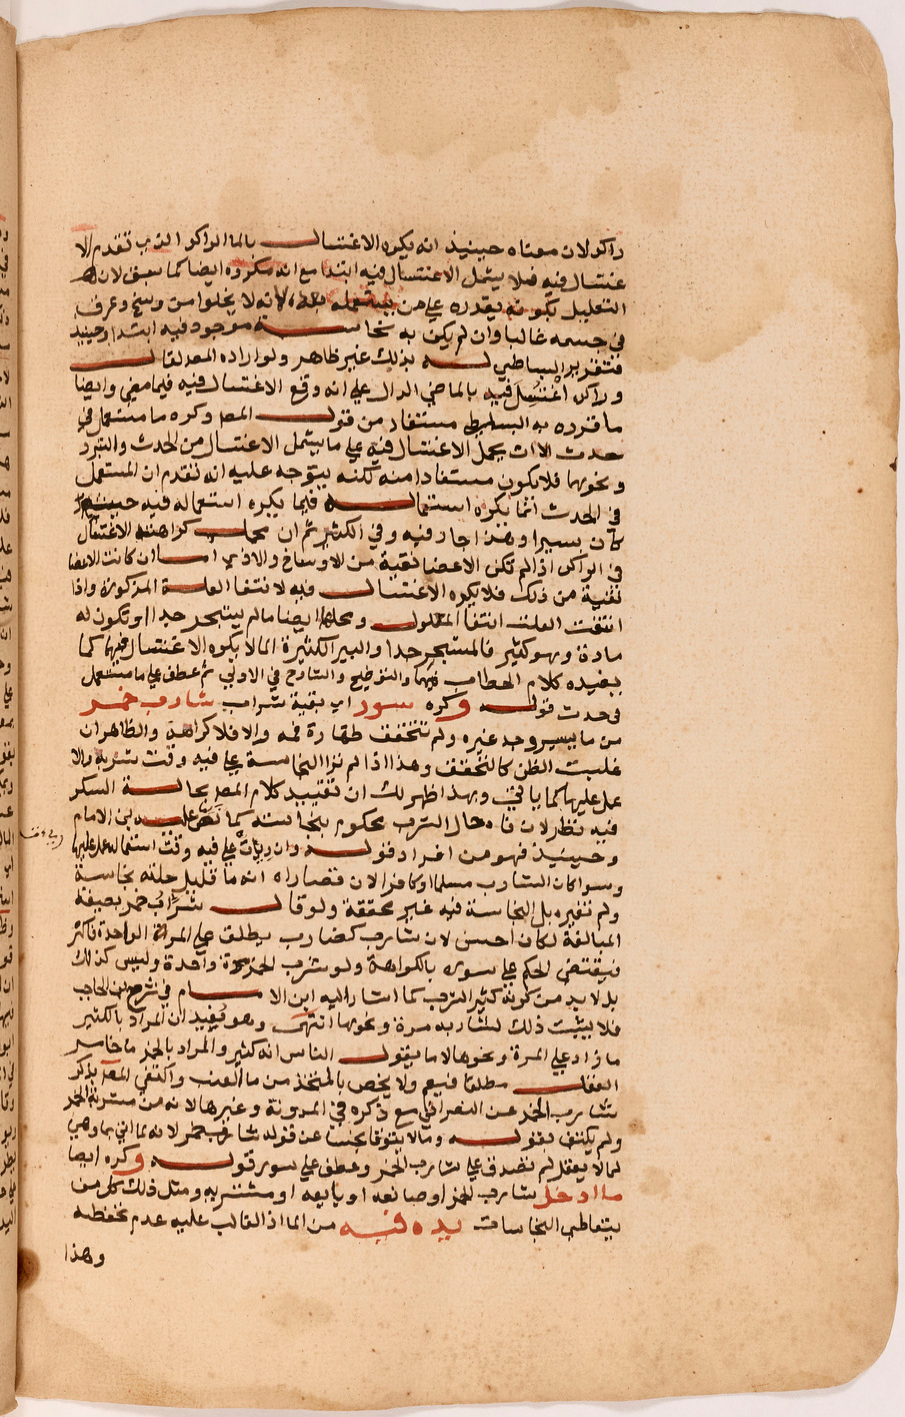 راكد لان معناه حينيذ انه يكره الاغتسال بالما الراكد الذي تقدم الا
غتسال فيه فلا يشمل الاغتسال فيه ابتدا مع انه مكروه ايضا كما سبق لان
التعليل بكونه يقدره علي من يستعمله بعده لانه لا يخلوا من وسخ وعرق
في جسمه غالبا وان لم يكن به نجاسة موجود فيه ابتدا وحينيذ
فتقرير البساطي له بذلك غير ظاهر ولو اراده المص لقال
وراكد اغتسل فيه بالماضي الدال علي انه وقع الاغتسال فيه فيما مضي وايضا
ما قرره به البساطي مستفاد من قول المص وكره ما مستعمل في
حدث الا ان يحمل الاغتسال فيه علي ما يشمل الاغتسال من الحدث والتبرد
ونحوهما فلا يكون مستفادا منه لكنه يتوجه عليه انه تقدم ان المستعمل
في الحدث انما يكره استعماله فيما يكره استعماله فيه حينيذ
كان يسيرا وهذا جار فيه وفي الكثير ثم ان محل كراهته الاغتسال
في الراكد اذا لم تكن الاعضا نقية من الاوساخ والاذي اما ان كانت الاعضا
نقية من ذلك فلا يكره الاغتسال فيه لانتفا العلة المذكورة واذا
انتفت العلة انتفا المعلول ومحلها ايضا ما لم يستبحر جدا او تكون له
مادة وهو كثير فالمستبحر جدا والبير الكثيرة الما لا يكره الاغتسال فيهما كما
يفيده كلام الحطاب فيهما والتوضيح والشارح في الاولي ثم عطف علي ما مستعمل
في حدث قوله وكره سور اي بقية شراب شارب خمر
من ما يسير وجد غيره ولم تتحقق طهارة فمه والا فلا كراهة والظاهر ان
غلبت الظن كالتحقق وهذا اذا لم نرا النجاسة علي فيه وقت شربه والا
عمل عليها كما ياتي وبهذا ظهر لك ان تقييد كلام المص بحالة السكر
فيه نظر لان فاه حال الشرب محكوم بنجاسته كما نص عليه بن الامام
وحينيذ فهو من افراد قوله وان رييت علي فيه وقت استعماله عمل عليها
وسوا كان الشارب مسلما او كافرا لان قصاراه انه ما قليل حلته نجاسة
ولم تغيره بل النجاسة فيه غير محققة ولو قال شراب خمر بصيغة
المبالغة لكان احسن لان شارب كضارب يطلق علي المرة الواحدة فاكثر
فيقتضي الحكم علي سوره بالكراهة ولو شرب الخمر مرة واحدة وليس كذلك
بل لا بد من كونه كثير الشرب كما اشار اليه ابن الامام في شرح بن الحاجب
فلا يثبت ذلك لشاربه مرة ونحوها انتهى وهو يفيد ان المراد بالكثير
ما زاد علي المرة ونحوها لا ما يقول الناس انه كثير والمراد بالخمر ما خامر
العقل مطلقا فيعم ولا يخص بالمتخذ من ما العنب واكتفي المص بذكر
شارب الخمر عن النصراني مع ذكره في المدونة وغيرها لانه من شربة الخمر
ولم يكتف بقوله وما لا يتوقا نجسا عن قوله شارب خمر لانه لما اتي بما وهي
لما لا يعقل لم تصدق علي شارب الخمر وعطف علي سور قوله وكره ايضا
ما ادخل شارب الخمر او صانعه او بايعه او مشتريه ومثل ذلك كل من
يتعاطي النجاسات يده فيه من الما اذ الغالب عليه عدم تحفظه
وهذا